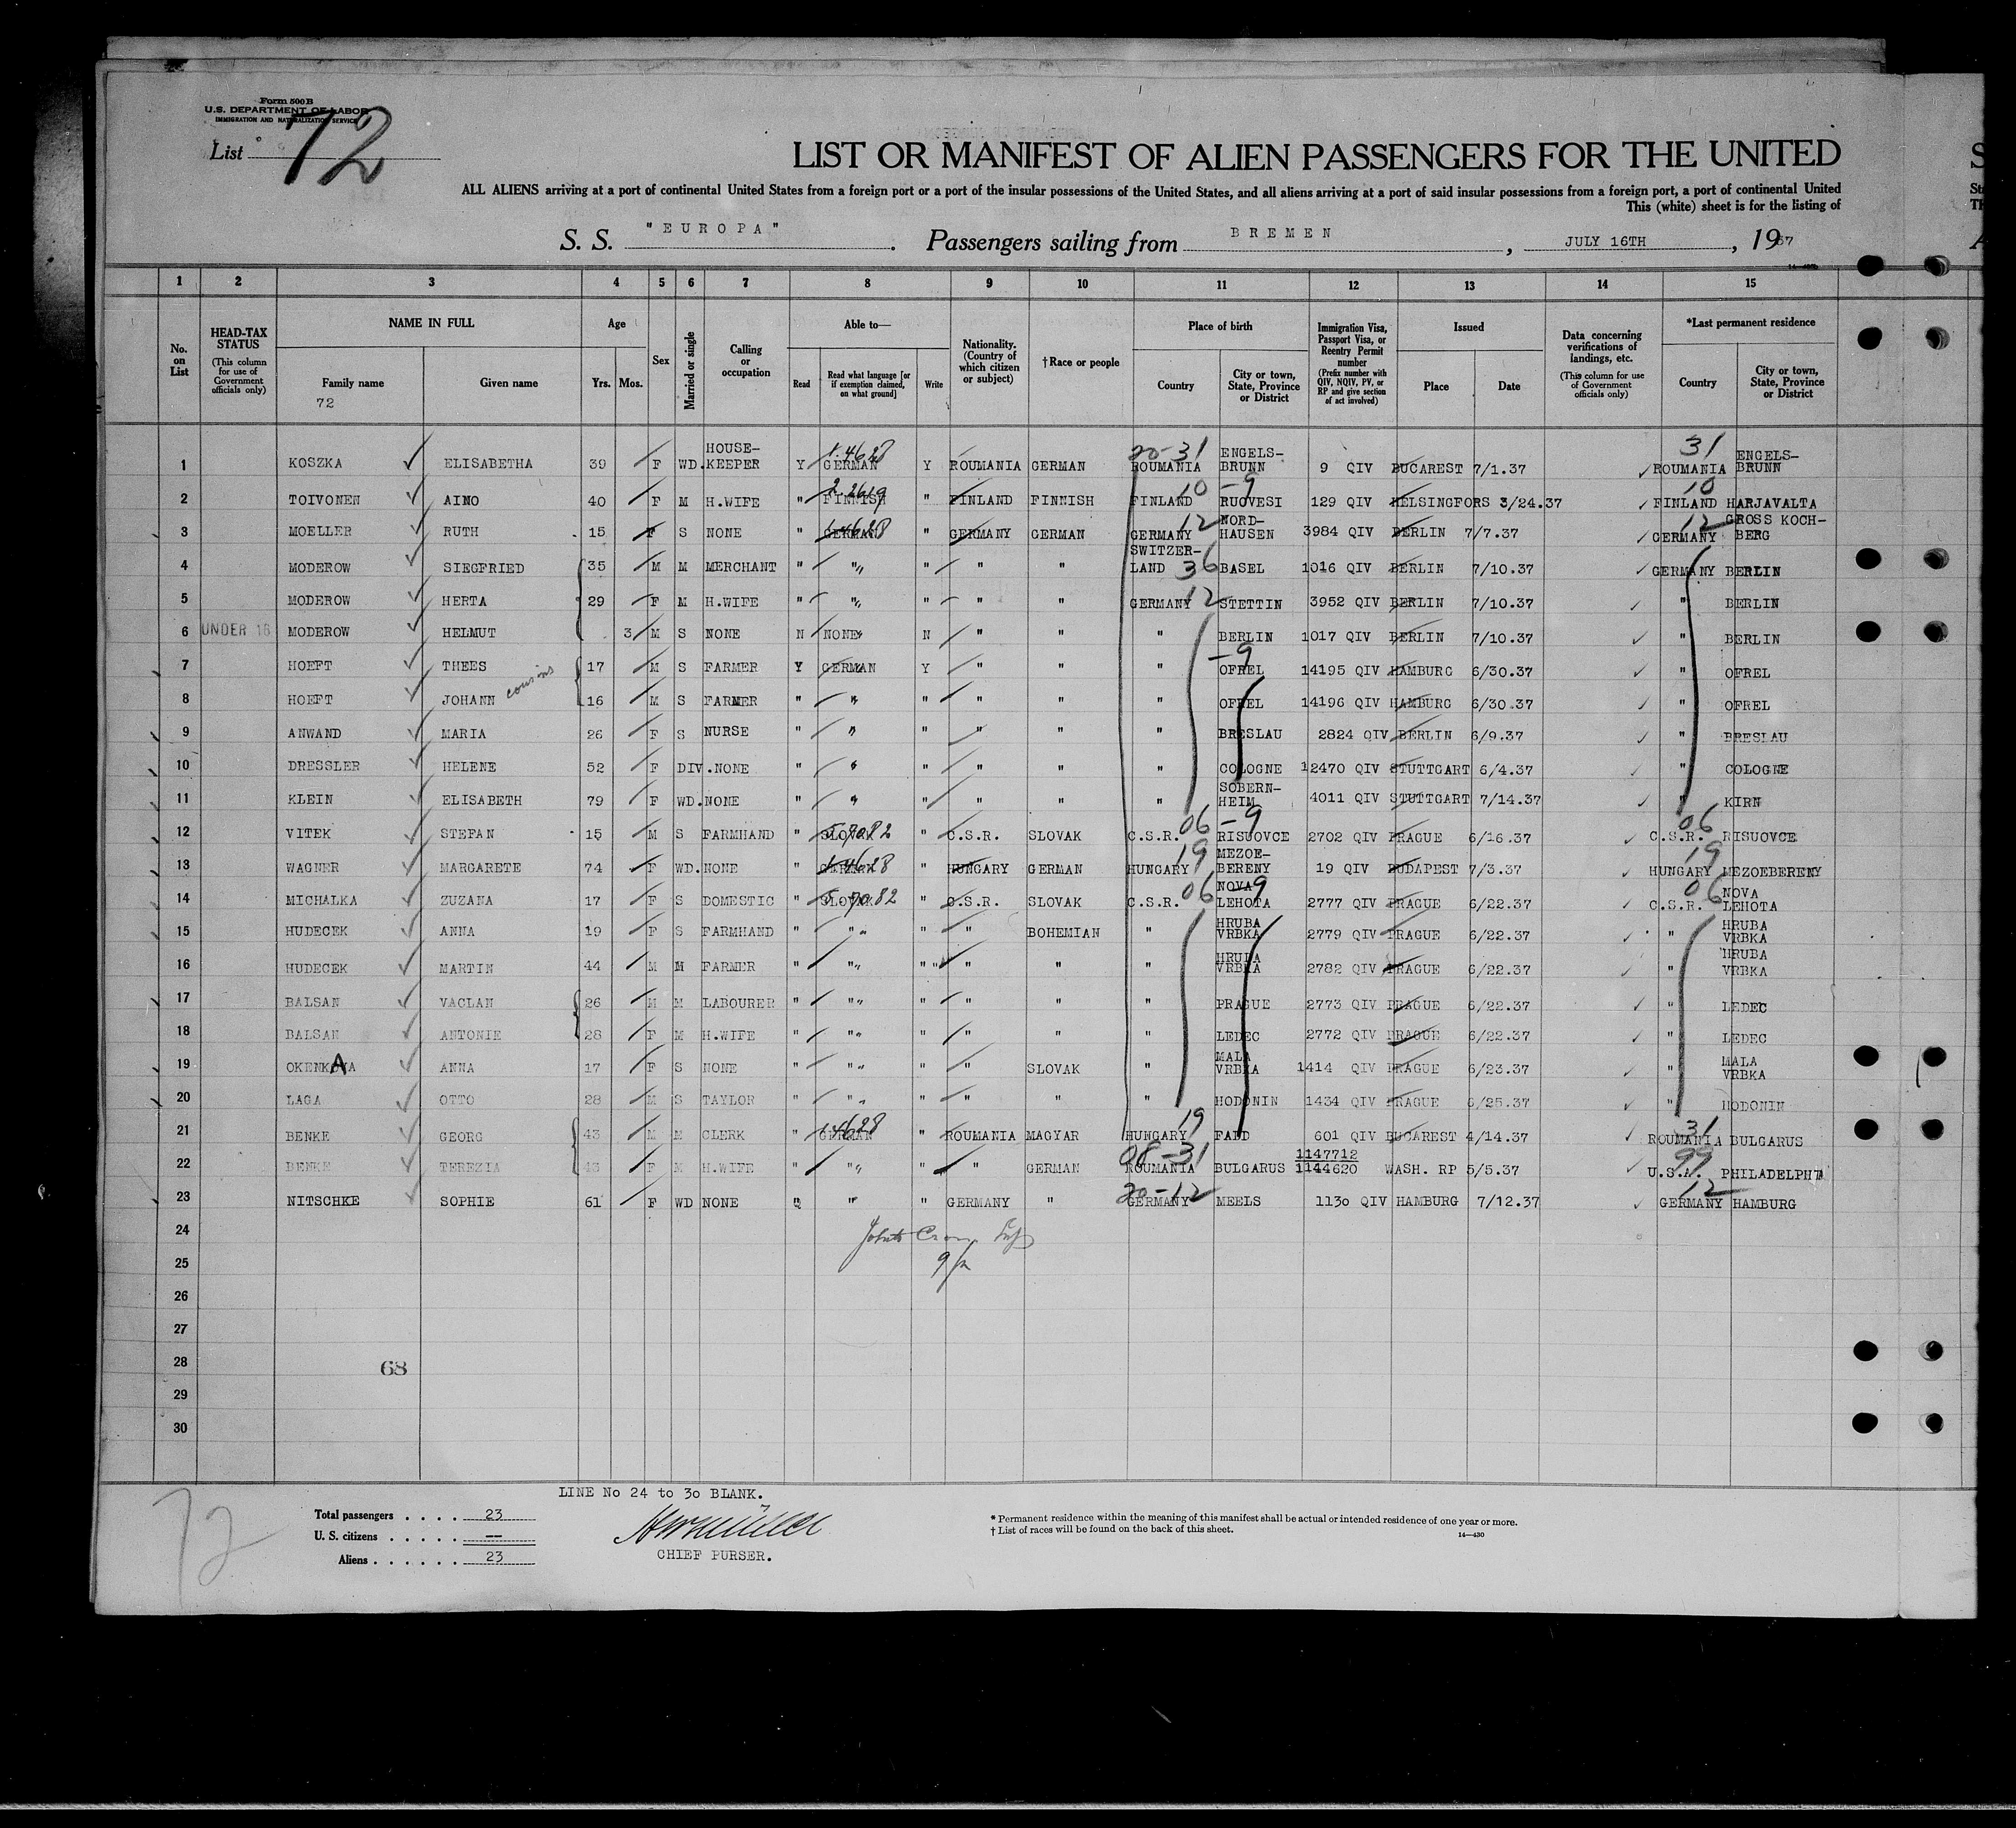 Form 500 B
U.S. DEPARTMENT OF LABOR
IMMIGRATION AND NATURALIZATION SERVICE
List 72
LIST OR MANIFEST OF ALIEN PASSENGERS FOR THE UNITED
ALL ALIENS arriving at a port of continental United States from a foreign port or a port of the insular possessions of the United States, and all aliens arriving at a port of said insular possessions from a foreign port, a port of continental United
This (white) sheet is for the listing of
S. S. "EUROPA". Passengers sailing from BREMEN, JULY 16TH, 1937
1 2 3 4 5 6 7 8 9 10 11 12 13 14 15
No. on List
HEAD-TAX STATUS (This column for use of Government officials only)
NAME IN FULL Family name Given name
72
Age Yrs. Mos.
Sex
Married or single
Calling or occupation
Able to— Read Read what language [or if exemption claimed, on what ground] Write
Nationality. (Country of which citizen or subject)
†Race or people
Place of birth Country City or town, State, Province or District
Immigration Visa, Passport Visa, or Reentry Permit number (Prefix number with QIV, NQIV, PV, or RP and give section of act involved)
Issued Place Date
Data concerning verifications of landings, etc. (This column for use of Government officials only)
*Last permanent residence Country City or town, State, Province or District
1 KOSZKA ELISABETHA 39 F WD. HOUSE-KEEPER Y GERMAN 1.4628 Y ROUMANIA GERMAN 20-31 ROUMANIA ENGELS-BRUNN 9 QIV BUCAREST 7/1.37 31 ROUMANIA ENGELS-BRUNN
2 TOIVONEN AINO 40 F M H.WIFE " FINNISH 2.2619 " FINLAND FINNISH FINLAND 10 -9 RUOVESI 129 QIV HELSINGFORS 3/24.37 10 FINLAND HARJAVALTA
3 MOELLER RUTH 15 F S NONE " GERMAN 1.4628 " GERMANY GERMAN GERMANY 12 NORD-HAUSEN 3984 QIV BERLIN 7/7.37 12 GERMANY GROSS KOCH-BERG
4 MODEROW SIEGFRIED 35 M M MERCHANT " " " " " SWITZER-LAND 36 BASEL 1016 QIV BERLIN 7/10.37 GERMANY BERLIN
5 MODEROW HERTA 29 F M H.WIFE " " " " " GERMANY 12 STETTIN 3952 QIV BERLIN 7/10.37 " BERLIN
6 UNDER 16 MODEROW HELMUT 3 M S NONE N NONE N " " " BERLIN 1017 QIV BERLIN 7/10.37 " BERLIN
7 HOEFT THEES 17 M S FARMER Y GERMAN Y " " " -9 OFREL 14195 QIV HAMBURG 6/30.37 " OFREL
cousins
8 HOEFT JOHANN 16 M S FARMER " " " " " " OFREL 14196 QIV HAMBURG 6/30.37 " OFREL
9 ANWAND MARIA 26 F S NURSE " " " " " " BRESLAU 2824 QIV BERLIN 6/9.37 " BRESLAU
10 DRESSLER HELENE 52 F DIV. NONE " " " " " " COLOGNE 12470 QIV STUTTGART 6/4.37 " COLOGNE
11 KLEIN ELISABETH 79 F WD. NONE " " " " " " SOBERN-HEIM 4011 QIV STUTTGART 7/14.37 " KIRN
12 VITEK STEFAN 15 M S FARMHAND " SLOVAK " C.S.R. SLOVAK C.S.R. 06 -9 RISUOVCE 2702 QIV PRAGUE 6/16.37 06 C.S.R. RISUOVCE
13 WAGNER MARGARETE 74 F WD. NONE " GERMAN 1.4628 " HUNGARY GERMAN HUNGARY 19 MEZOE-BERENY 19 QIV BUDAPEST 7/3.37 19 HUNGARY MEZOEBERENY
14 MICHALKA ZUZANA 17 F S DOMESTIC " SLOVAK " C.S.R. SLOVAK C.S.R. 06 -9 NOVA LEHOTA 2777 QIV PRAGUE 6/22.37 06 C.S.R. NOVA LEHOTA
15 HUDECEK ANNA 19 F S FARMHAND " " " " BOHEMIAN " HRUBA VRBKA 2779 QIV PRAGUE 6/22.37 " HRUBA VRBKA
16 HUDECEK MARTIN 44 M M FARMER " " " " " " HRUBA VRBKA 2782 QIV PRAGUE 6/22.37 " HRUBA VRBKA
17 BALSAN VACLAN 26 M M LABOURER " " " " " " PRAGUE 2773 QIV PRAGUE 6/22.37 " LEDEC
18 BALSAN ANTONIE 28 F M H.WIFE " " " " " " LEDEC 2772 QIV PRAGUE 6/22.37 " LEDEC
19 OKENKAVA ANNA 17 F S NONE " " " " SLOVAK " MALA VRBKA 1414 QIV PRAGUE 6/23.37 " MALA VRBKA
20 LAGA OTTO 28 M S TAYLOR " " " " " " HODONIN 1434 QIV PRAGUE 6/25.37 " HODONIN
21 BENKE GEORG 43 M M CLERK " GERMAN 14628 " ROUMANIA MAGYAR HUNGARY 19 FADD 601 QIV BUCAREST 4/14.37 31 ROUMANIA BULGARUS
22 BENKE TEREZIA 43 F M H.WIFE " " " " GERMAN 08-31 ROUMANIA BULGARUS 1147712 1144620 WASH. RP 5/5.37 99 U.S.A. PHILADELPHIA
23 NITSCHKE SOPHIE 61 F WD NONE " " GERMANY " 20-12 GERMANY MEELS 1130 QIV HAMBURG 7/12.37 12 GERMANY HAMBURG
24
25
26
27
28 68
29
30
LINE No 24 to 30 BLANK.
Total passengers . . . . 23
U. S. citizens . . . . . . —
Aliens . . . . . . 23
CHIEF PURSER.
* Permanent residence within the meaning of this manifest shall be actual or intended residence of one year or more.
† List of races will be found on the back of this sheet.
14—430
72